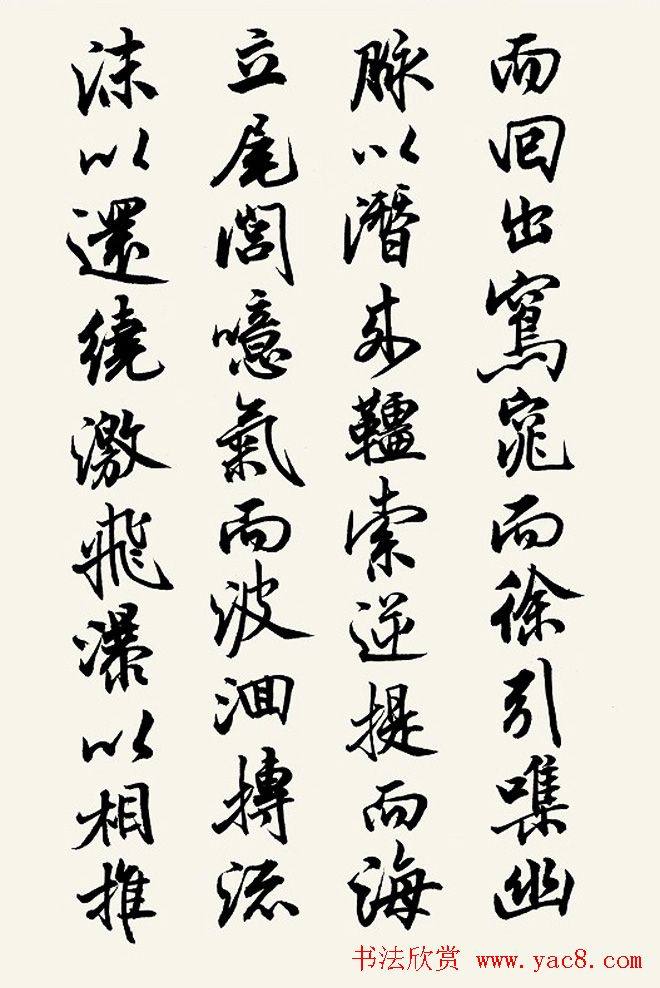 而回出窵窕而徐引噗幽
脉以潛來韁索逆提而海
立尾閭噫氣而波洄摶流
沫以還繞激飛瀑以相推
书法欣赏 www.yac8.com